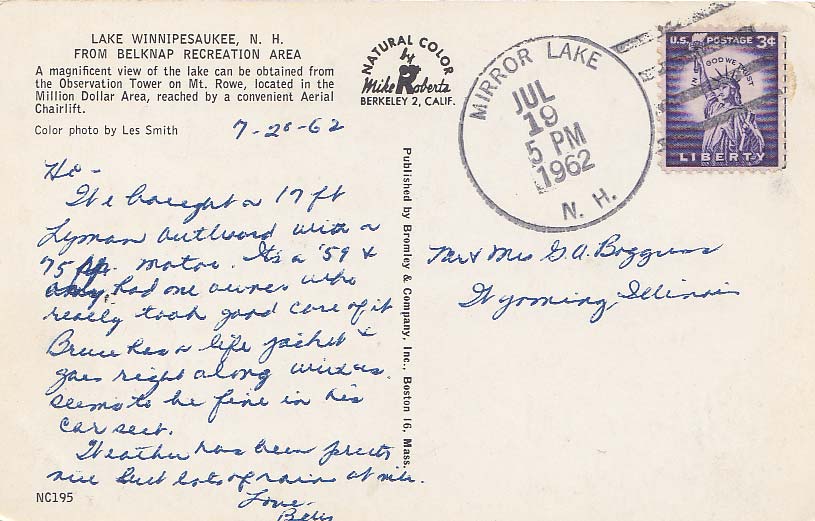 LAKE WINNIPESAUKEE, N. H.
FROM BELKNAP RECREATION AREA
A magnificent view of the lake can be obtained from
the Observation Tower on Mt. Rowe, located in the
Million Dollar Area, reached by a convenient Aerial
Chairlift.
Color photo by Les Smith
NATURAL COLOR
by
Mike Roberts
BERKELEY 2, CALIF.
MIRROR LAKE
JUL
19
5 PM
1962
N. H.
U.S. POSTAGE 3¢
IN GOD WE TRUST
LIBERTY
7-20-62
Hi -
We bought a 17 ft
Lyman outboard with a
75 hp. motor. Its a '59 &
only had one owner who
really took good care of it
Bruce has a life jacket &
goes right along with us.
seems to be fine in his
car seat.
Weather has been pretty
nice but lots of rain at nite.
Love -
Published by Bromley & Company, Inc., Boston 16, Mass.
Mr & Mrs G. A. Boggess
Wyoming, Illinois
NC195